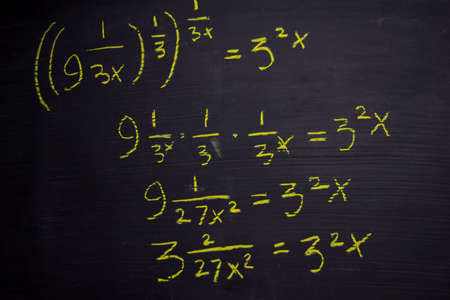 ((9^(1/3x))^(1/3))^(1/3x) = 3^2x
9^(1/3x · 1/3 · 1/3x) = 3^2x
9^(1/27x²) = 3^2x
3^(2/27x²) = 3^2x